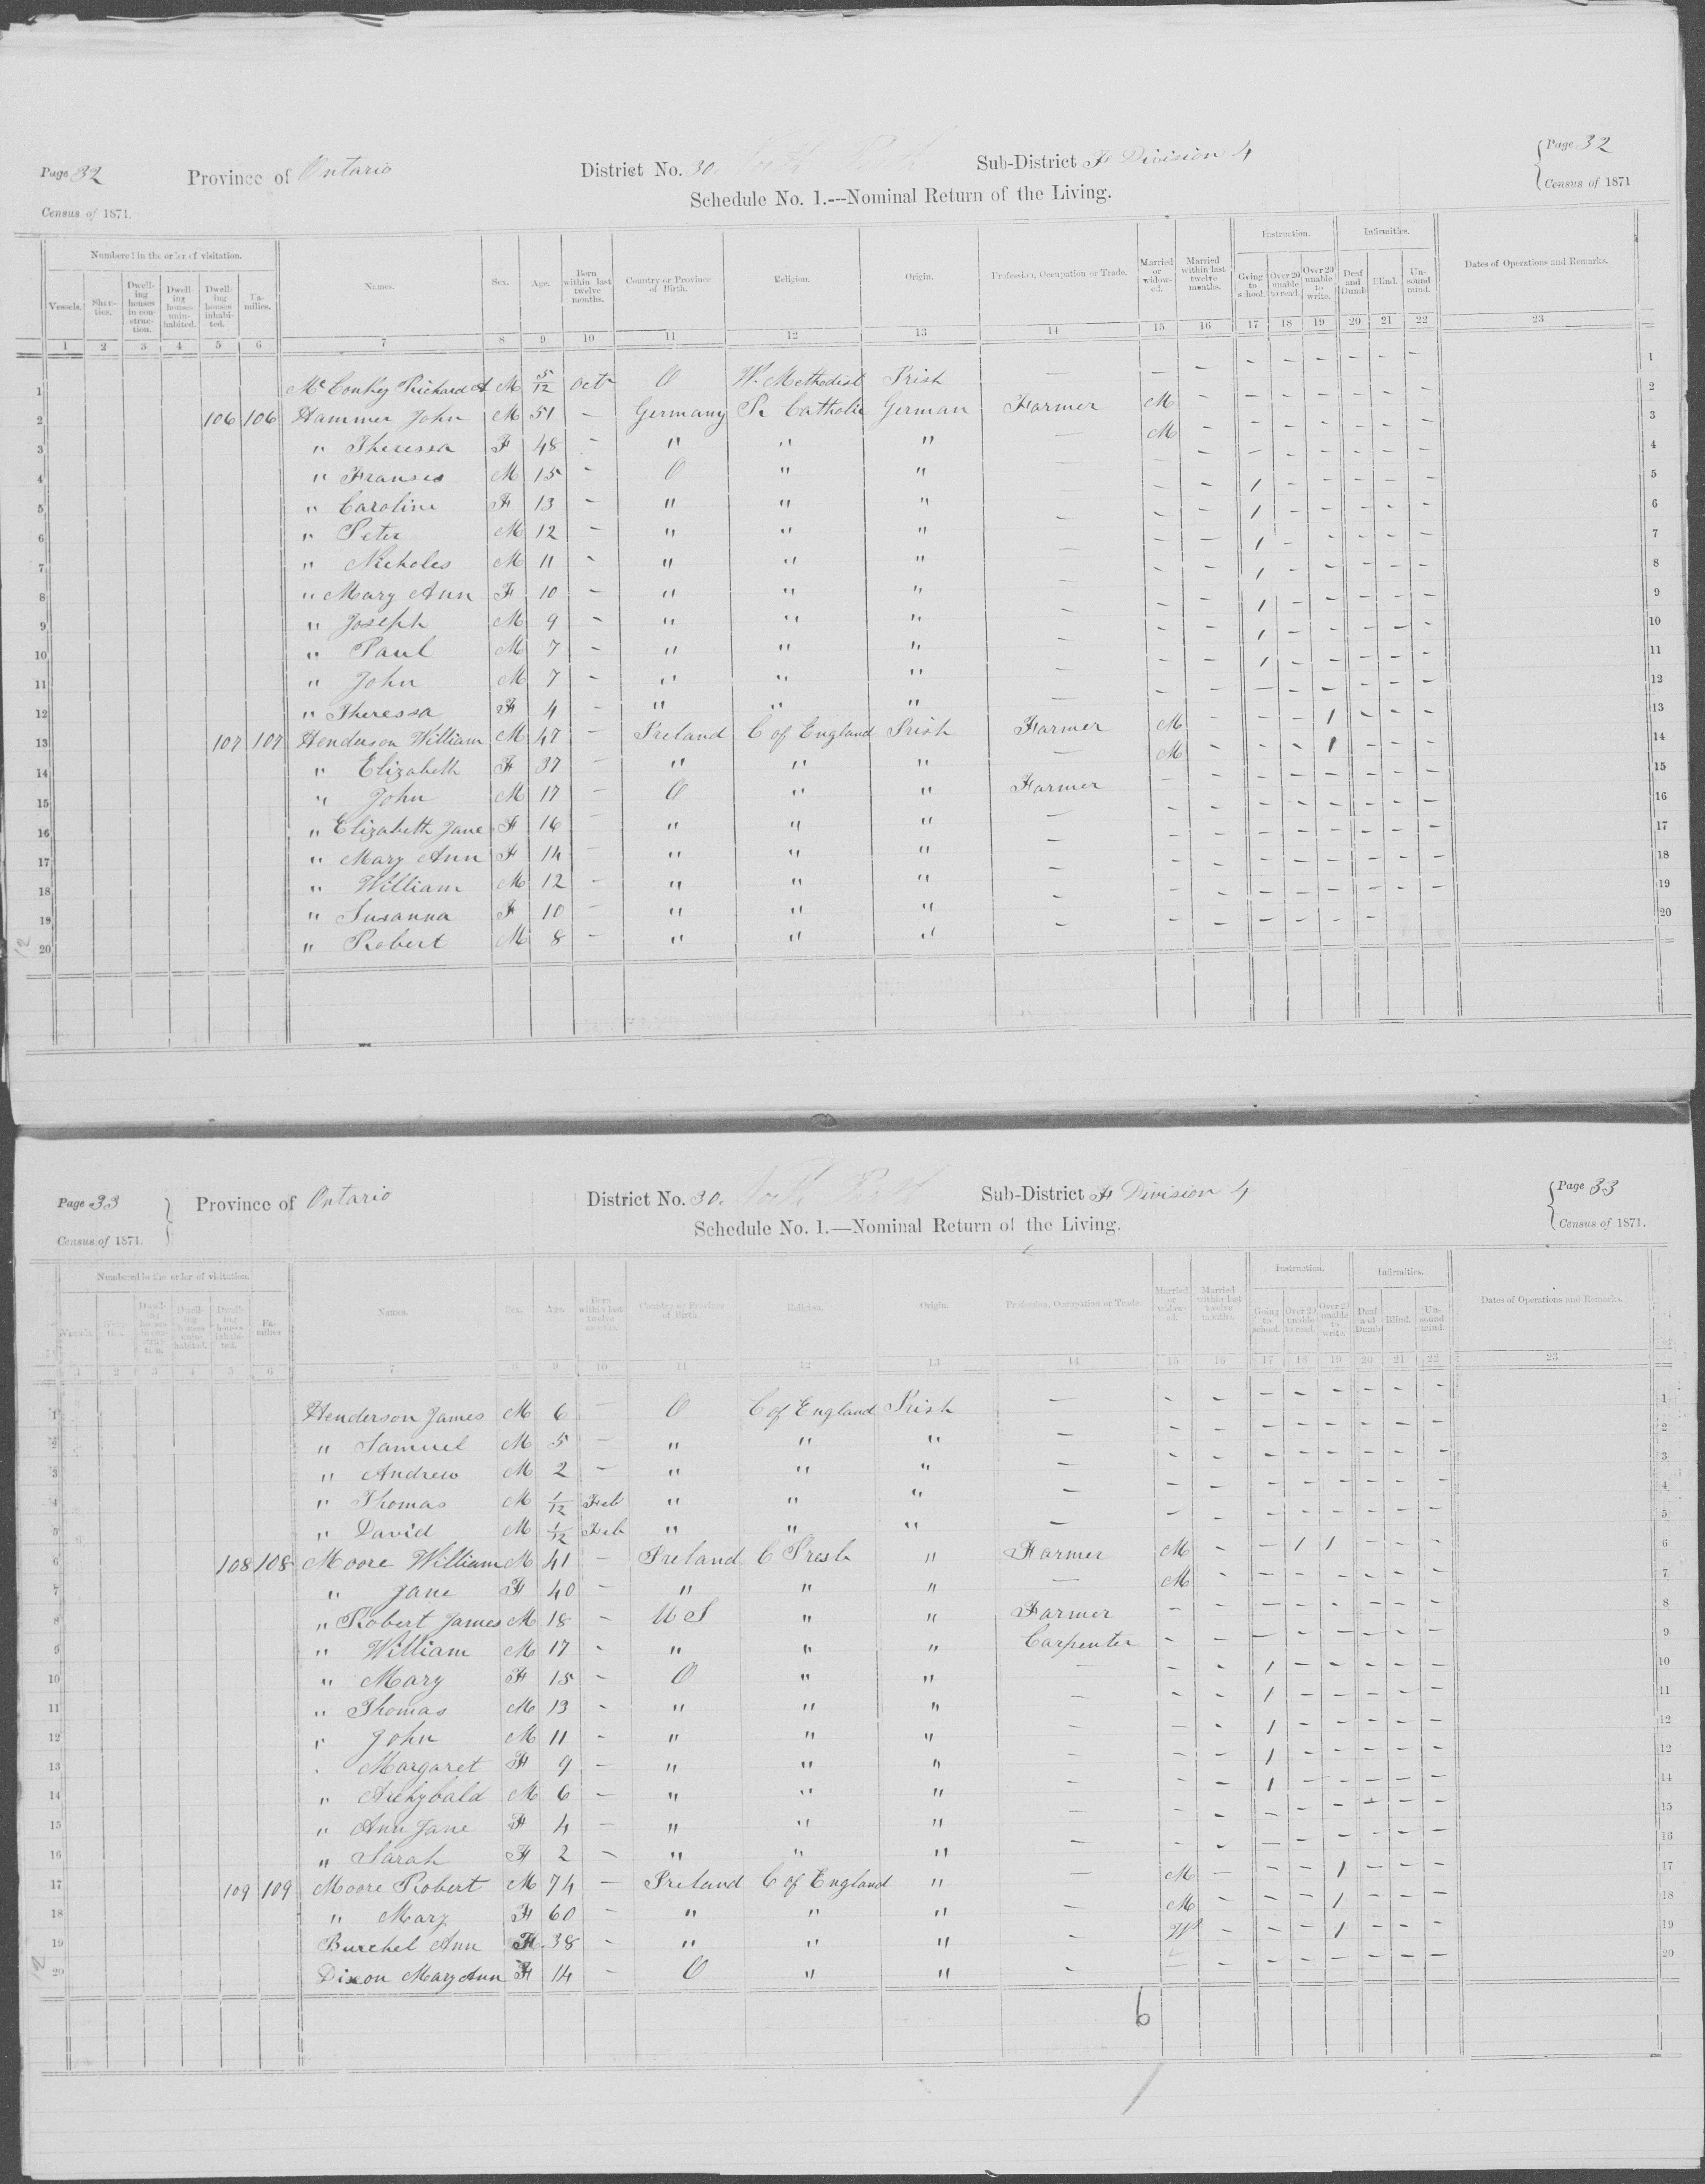 Page 32 Province of Ontario District No. 30. North Perth Sub-District F Division 4 Page 32
Census of 1871. Schedule No. 1.---Nominal Return of the Living. Census of 1871
Numbered in the order of visitation. Instruction. Infirmities.
Vessels. Shanties. Dwelling houses in construction. Dwelling houses uninhabited. Dwelling houses inhabited. Families. Names. Sex. Age. Born within last twelve months. Country or Province of Birth. Religion. Origin. Profession, Occupation or Trade. Married or widowed. Married within last twelve months. Going to school. Over 20 unable to read. Over 20 unable to write. Deaf and Dumb Blind. Unsound mind. Dates of Operations and Remarks.
1 2 3 4 5 6 7 8 9 10 11 12 13 14 15 16 17 18 19 20 21 22 23
1 McConkey Richard A M 5/12 Octr O W. Methodist Irish — - - - - - - - - 1
2 106 106 Hammer John M 51 - Germany R Catholic German Farmer M - - - - - - - 2
3 " Theressa F 48 - " " " — M - - - - - - - 3
4 " Franses M 15 - O " " — - - 1 - - - - - 4
5 " Caroline F 13 - " " " — - - 1 - - - - - 5
6 " Peter M 12 - " " " — - - 1 - - - - - 6
7 " Nicholes M 11 - " " " — - - 1 - - - - - 7
8 " Mary Ann F 10 - " " " — - - 1 - - - - - 8
9 " Joseph M 9 - " " " — - - 1 - - - - - 9
10 " Paul M 7 - " " " — - - 1 - - - - - 10
11 " John M 7 - " " " — - - - - - - - - 11
12 " Theressa F 4 - " " " — - - - - - - - - 12
13 107 107 Henderson William M 47 - Ireland C of England Irish Farmer M - - - 1 - - - 13
14 " Elizabeth F 37 - " " " — M - - - 1 - - - 14
15 " John M 17 - O " " Farmer - - - - - - - - 15
16 " Elizabeth Jane F 16 - " " " — - - - - - - - - 16
17 " Mary Ann F 14 - " " " — - - - - - - - - 17
18 " William M 12 - " " " — - - - - - - - - 18
19 " Susanna F 10 - " " " — - - - - - - - - 19
20 " Robert M 8 - " " " — - - - - - - 20
Page 33 Province of Ontario District No. 30. North Perth Sub-District F Division 4 Page 33
Census of 1871. Schedule No. 1.—Nominal Return of the Living. Census of 1871.
Numbered in the order of visitation. Instruction. Infirmities.
Vessels. Shanties. Dwelling houses in construction. Dwelling houses uninhabited. Dwelling houses inhabited. Families Names. Sex. Age. Born within last twelve months. Country or Province of Birth. Religion. Origin. Profession, Occupation or Trade. Married or widowed. Married within last twelve months. Going to school. Over 20 unable to read. Over 20 unable to write. Deaf and Dumb Blind. Unsound mind. Dates of Operations and Remarks.
1 2 3 4 5 6 7 8 9 10 11 12 13 14 15 16 17 18 19 20 21 22 23
1 Henderson James M 6 - O C of England Irish — - - - - - - - - 1
2 " Samuel M 5 - " " " — - - - - - - - - 2
3 " Andrew M 2 - " " " — - - - - - - - - 3
4 " Thomas M 1/12 Feb " " " — - - - - - - - - 4
5 " David M 1/12 Feb " " " — - - - - - - - - 5
6 108 108 Moore William M 41 - Ireland C Presb " Farmer M - - 1 1 - - - 6
7 " Jane F 40 - " " " — M - - - - - - - 7
8 " Robert James M 18 - U S " " Farmer - - - - - - - - 8
9 " William M 17 - " " " Carpenter - - - - - - - - 9
10 " Mary F 15 - O " " — - - 1 - - - - - 10
11 " Thomas M 13 - " " " — - - 1 - - - - - 11
12 " John M 11 - " " " — - - 1 - - - - - 12
13 " Margaret F 9 - " " " — - - 1 - - - - - 12
14 " Archybald M 6 - " " " — - - 1 - - - - - 14
15 " Ann Jane F 4 - " " " — - - - - - - - - 15
16 " Sarah F 2 - " " " — - - - - - - - - 16
17 109 109 Moore Robert M 74 - Ireland C of England " — M - - - 1 - - - 17
18 " Mary F 60 - " " " — M - - - 1 - - - 18
19 Burchel Ann F 38 - " " " - W - - - 1 - - - 19
20 Dixon Mary Ann F 14 - O " " - - - - - - - - - 20
6